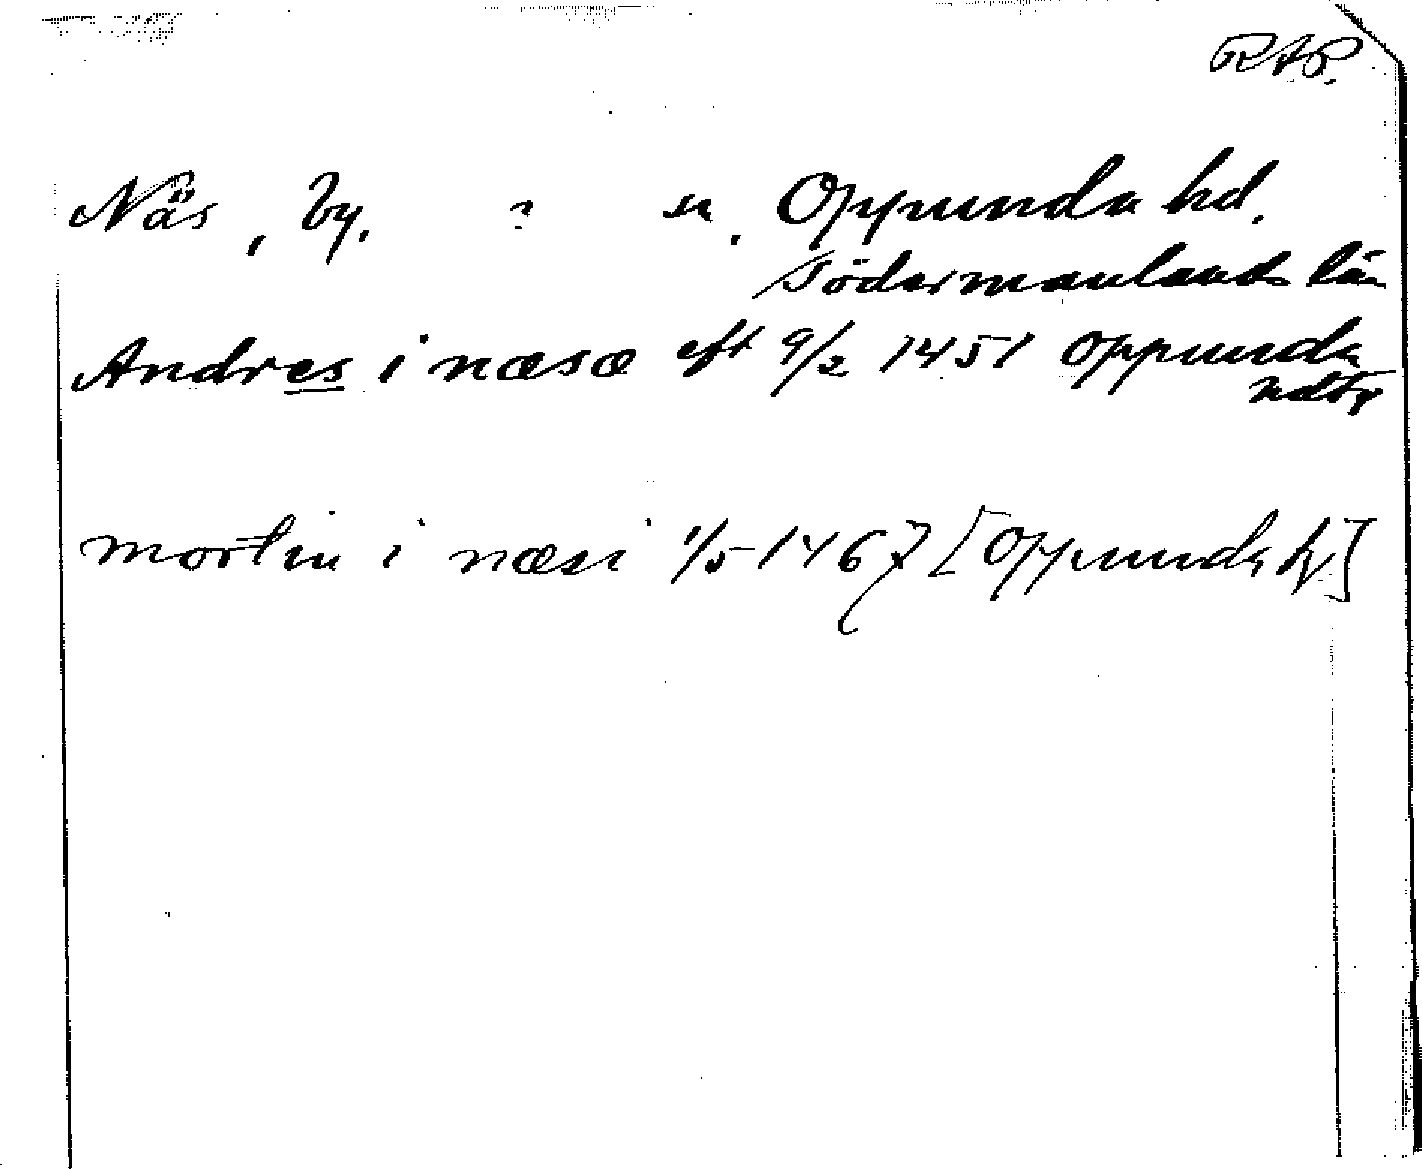 RAP.
Näs, by. ? sn, Oppunda hd.
Södermanlands län
Andres i næsæ eft 9/2 1451 Oppunda
morten i næsi 1/5 1467 [Oppunda h]